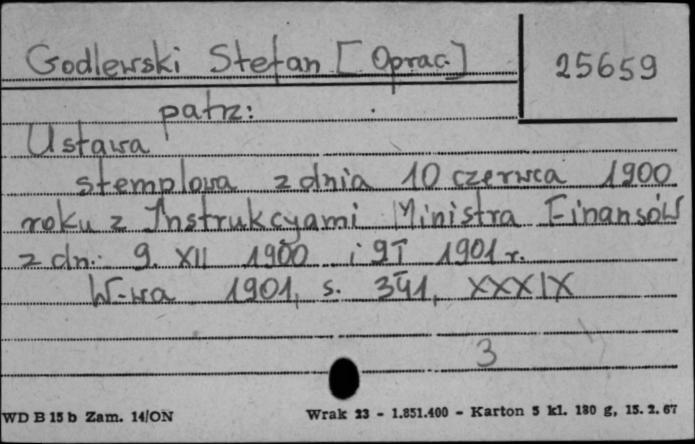 Godlewski Stefan [Oprac.]
25659
patrz:
Ustawa
stemplowa z dnia 10 czerwca 1900
roku z Instrukcyami Ministra Finansów
z dn. 9. XII 1900 i 9 I 1901 r.
W-wa 1901, s. 341, XXXIX
3
WD B 15 b Zam. 14/ON
Wrak 23 - 1.851.400 - Karton 5 kl. 180 g, 15. 2. 67